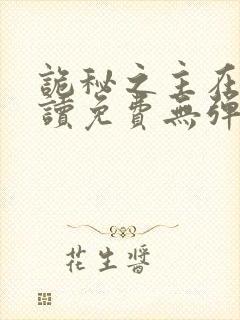 詭秘之主在
讀免費無彈
花生醬